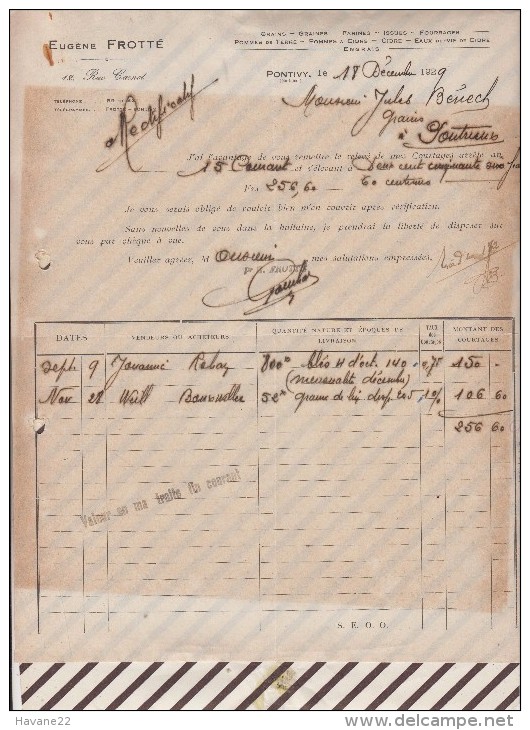 EUGÈNE FROTTÉ
12, Rue Carnot
TÉLÉPHONE :
GRAINS - GRAINES - FARINES - ISSUES - FOURRAGES
POMMES DE TERRE - POMMES A CIDRE - CIDRE - EAUX-DE-VIE DE CIDRE
ENGRAIS
PONTIVY, le 18 Décembre 1929
Rectificatif
Monsieur Jules Bénech
grains
à Pontrieux
J'ai l'avantage de vous remettre le relevé de mes Courtages arrêté au
15 Courant et s'élevant à Deux cent cinquante six frs
Frs 256,60 60 centimes
Je vous serais obligé de vouloir bien m'en couvrir après vérification.
Sans nouvelles de vous dans la huitaine, je prendrai la liberté de disposer sur
vous par chèque à vue.
Veuillez agréer, M onsieur mes salutations empressées.
Pr E. FROTTÉ
DATES VENDEURS OU ACHETEURS QUANTITÉ NATURE ET ÉPOQUES DE LIVRAISON TAUX des Courtages MONTANT DES COURTAGES
Sept. 9 800 qx blés d'oct. 140 0,75 150 -
(mensualité décembre)
Nov 28 Weill 52 graine de lin disp. 205 1% 106 60
256 60
Valeur en ma traite fin courant
S. E. O. O.
Havane22
www.delcampe.net